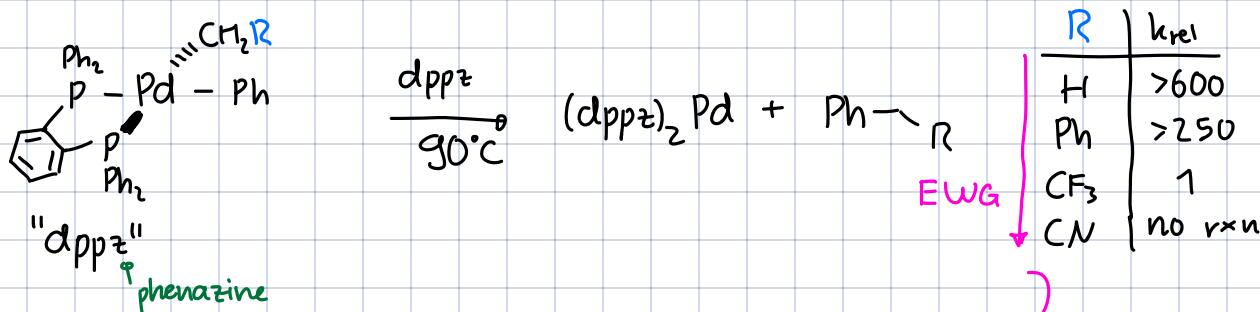 Ph₂
P – Pd – Ph
CH₂R
P
Ph₂
"dppz"
phenazine
dppz
90°C
(dppz)₂ Pd + Ph R
EWG
R krel
H >600
Ph >250
CF₃ 1
CN no rxn